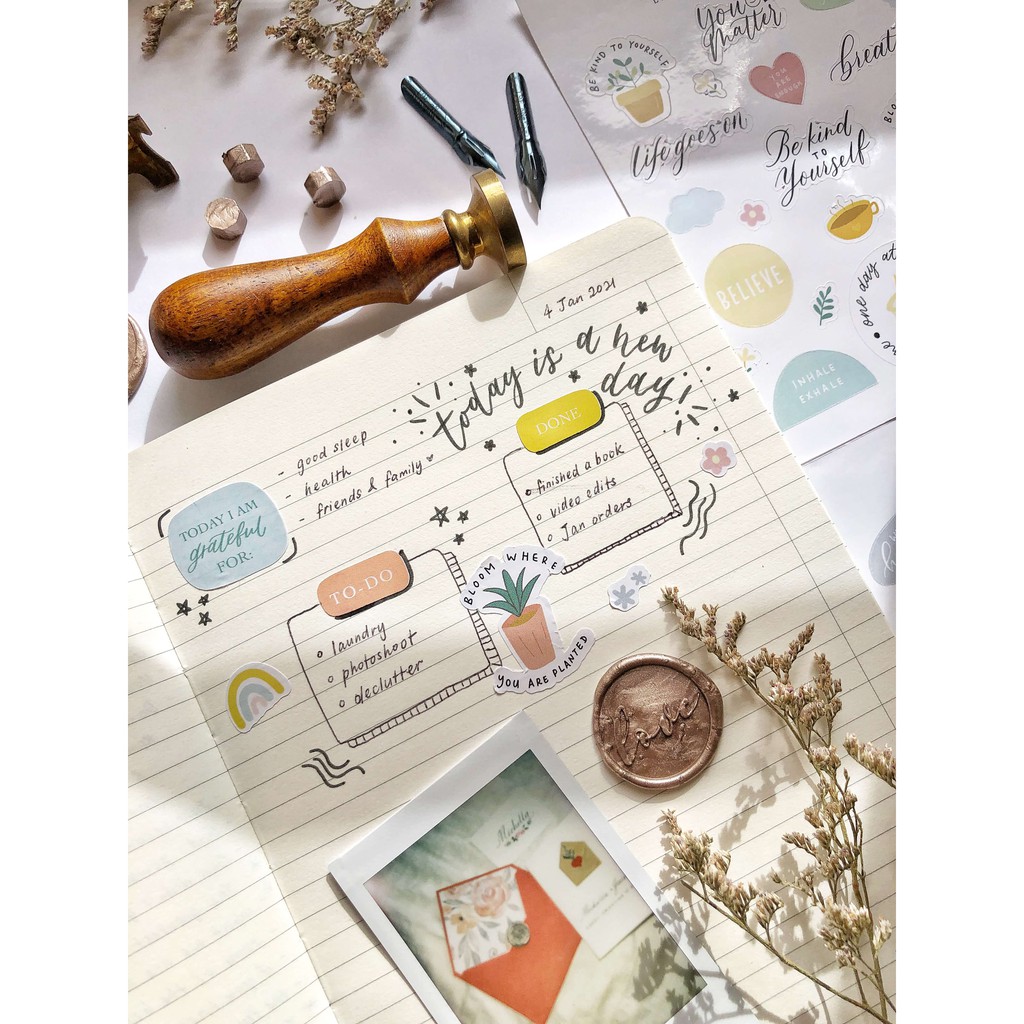 You
Matter
BE KIND TO YOURSELF
YOU
ARE
ENOUGH
life goes on
Be kind
TO
Yourself
BELIEVE
one day at
INHALE
EXHALE
4 Jan 2021
today is a new
day!
- good sleep
- health
- friends & family
TODAY I AM
grateful
FOR:
DONE
finished a book
video edits
Jan orders
TO-DO
laundry
photoshoot
declutter
BLOOM WHERE
YOU ARE PLANTED
love